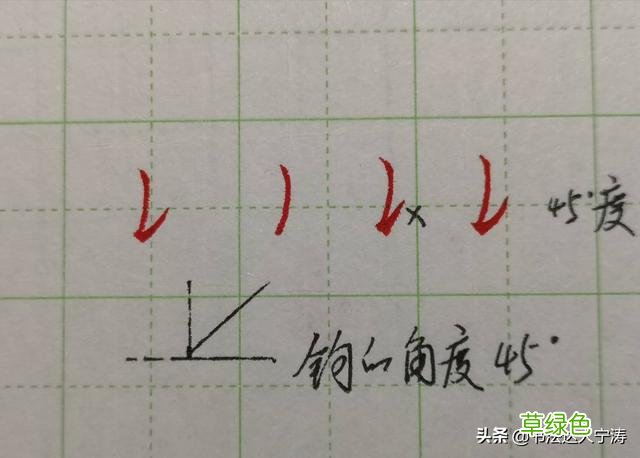 × 45°度
钩的角度45°
草绿色
头条 @书法达人宁涛